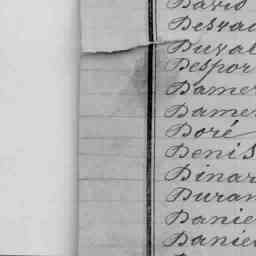 David
Desvac
Duval
Despor
Damer
Damer
Doré
Denis
Dinar
Duran
Danie
Danie